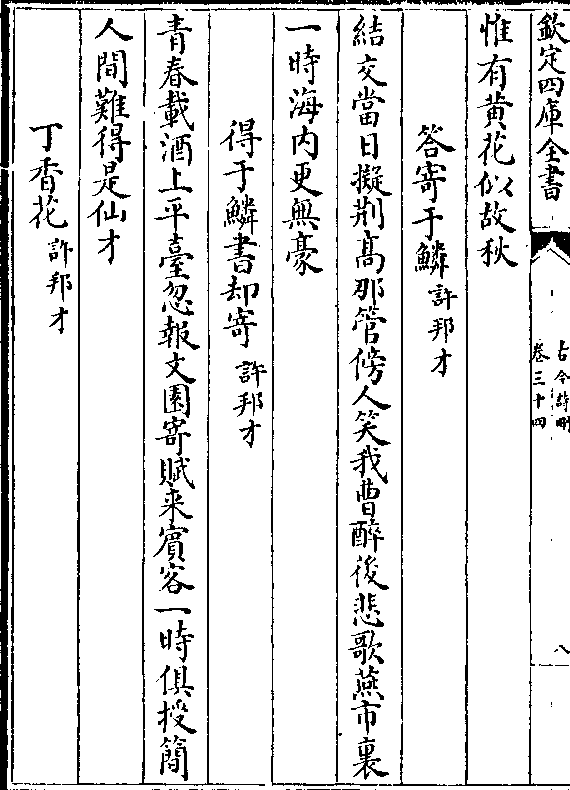 欽定四庫全書
古今詩刪
卷三十四
八
惟有黄花似故秋
答寄于鱗 許邦才
結交當日擬荆髙那管傍人笑我曹醉後悲歌燕市裏
一時海内更無豪
得于鱗書却寄 許邦才
青春載酒上平臺忽報文園寄賦来賓客一時俱授簡
人間難得是仙才
丁香花 許邦才